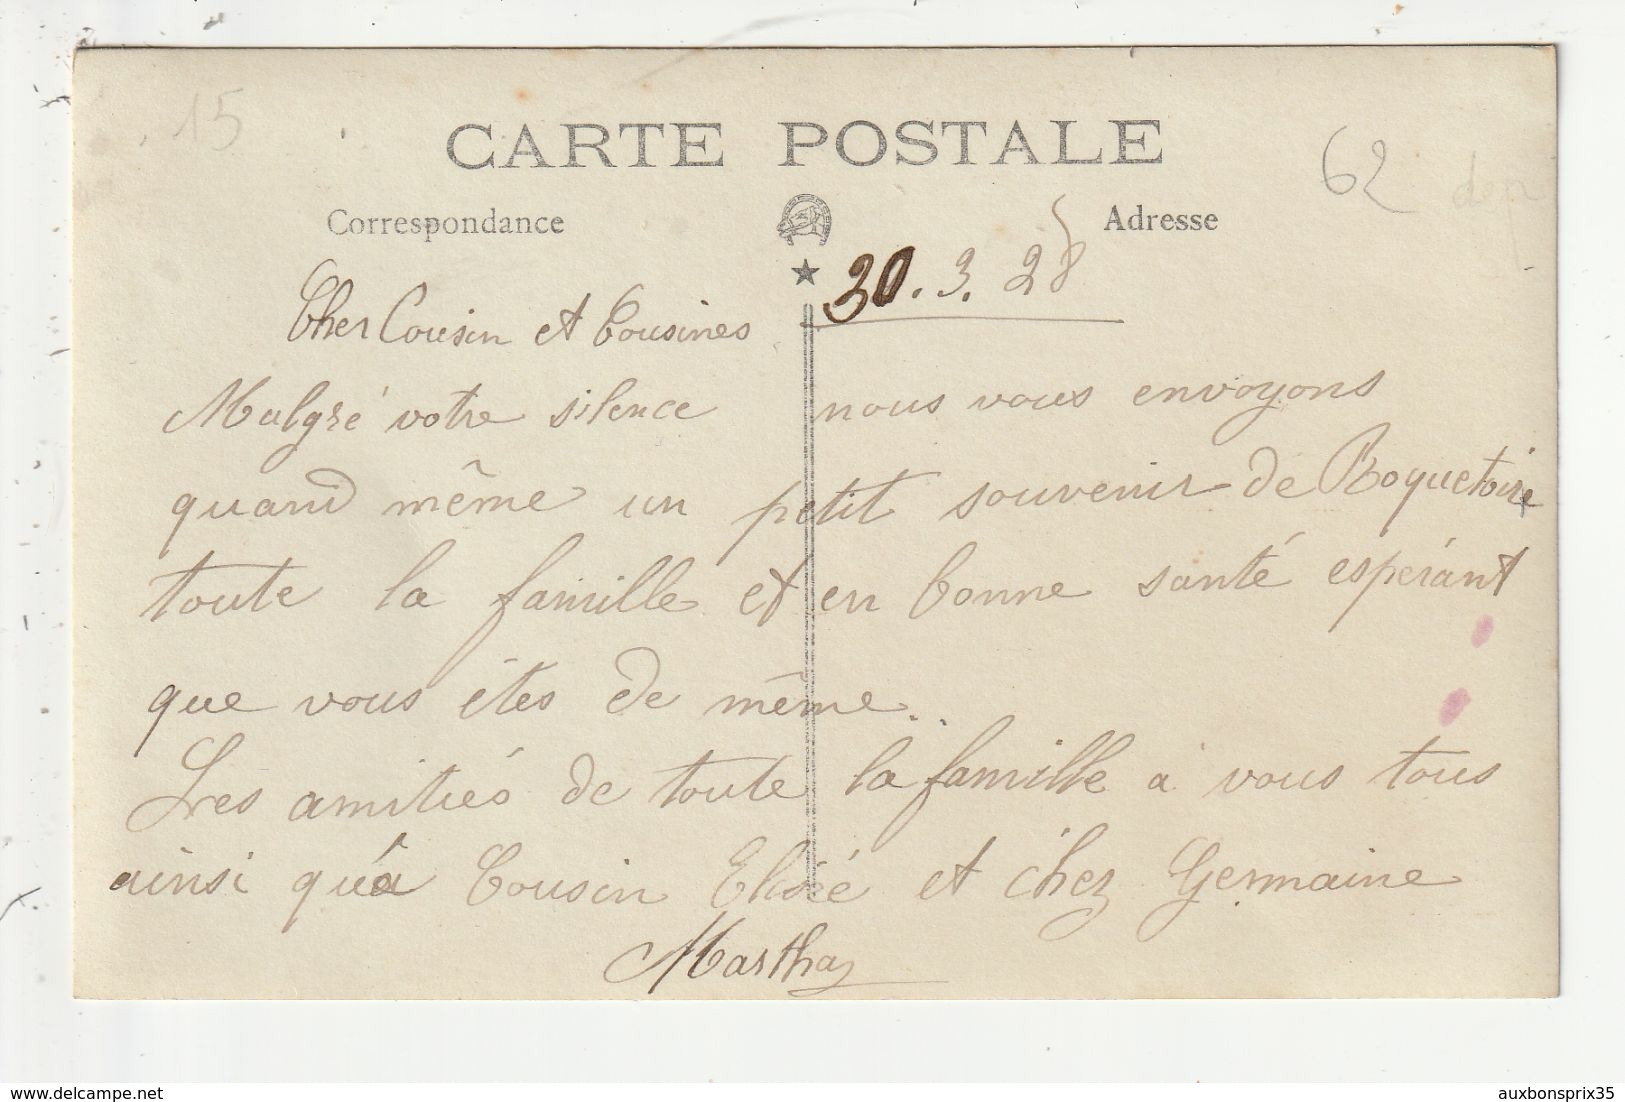 15
CARTE POSTALE
62
Correspondance
Adresse
30.3.28
Cher Cousin et Cousines
Malgré votre silence nous vous envoyons
quand même un petit souvenir de Roquetoire
toute la famille et en bonne santé espérant
que vous êtes de même.
Les amitiés de toute la famille a vous tous
ainsi qu'à Cousin Elisée et chez Germaine
Martha
delcampe.net
auxbonsprix35